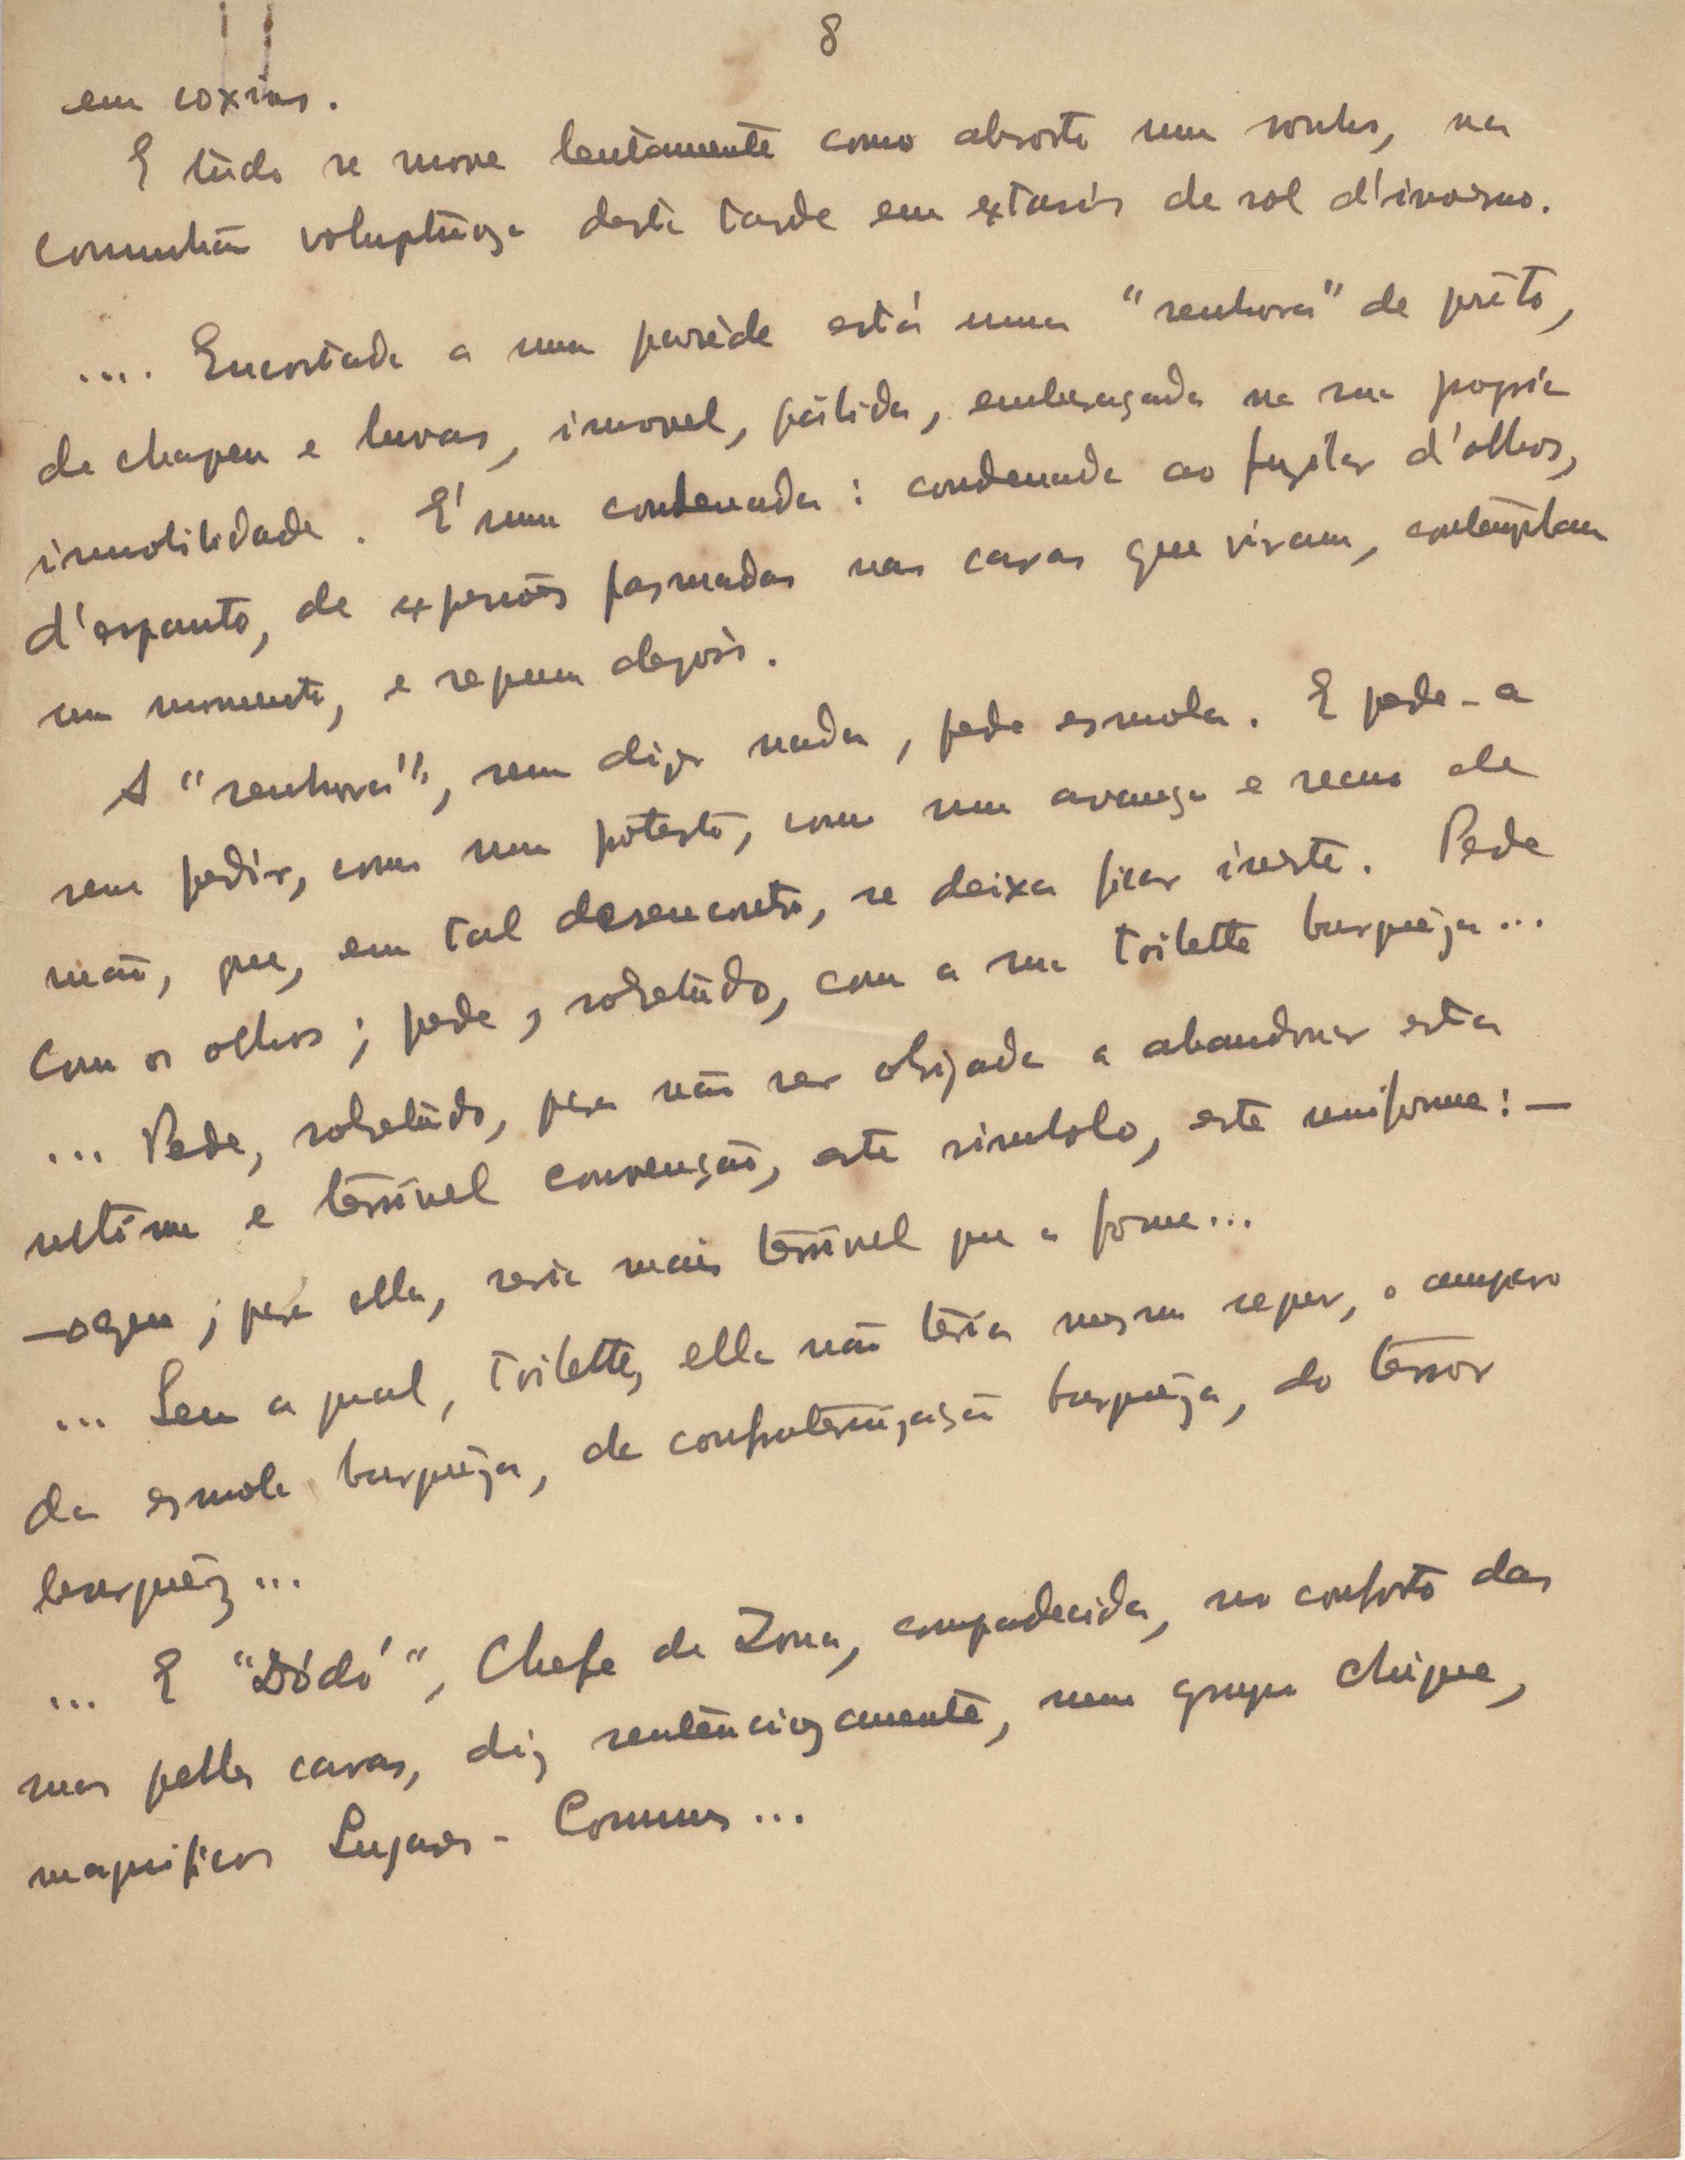 8
em coxins.
E túdo se move lentamente como absorto num sonho, na
comunhão voluptuosa desta tarde em extasis de sol d'inverno.
.... Encostada a uma paréde está uma "senhora" de prèto,
de chapeu e luvas, imovel, pálida, embuçada na sua propria
immobilidade. E' uma condenada: condenada ao fuzilar d'olhos,
d'espanto, de expressões pasmadas nas caras que viram, contemplam
um momento, e seguem depois.
A "senhora", sem dizer nada, pede esmola. E pede-a
sem pedir, como num protesto, com um avança e recua de
mão, que, em tal desencontro, se deixa ficar inerte. Pede
com os olhos; pede, sobretúdo, com a sua toilette burguêza...
... Pede, sobretúdo, para não ser obrigada a abandonar esta
ultima e terrivel convenção, este simbolo, este uniforme: —
— o que, para ella, seria mais terrivel que a fome...
... Sem a qual, toilette, ella não teria mesmo sequer, o amparo
da esmola burguêza, da confraternização burguêza, do terror
burguêz...
... E "Dódó", Chefe de Zona, compadecida, no conforto das
suas pelles caras, diz sentênciozamente, num grupo chique,
magnificos Lugares-Comuns...